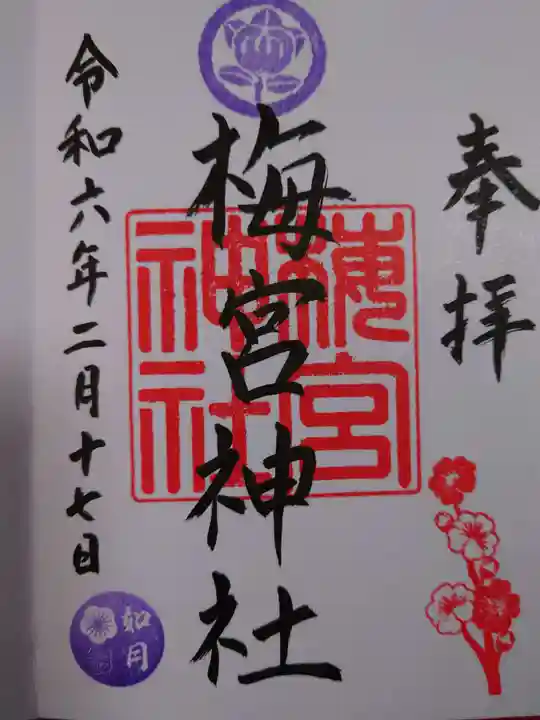 奉拝
梅宮神社
梅宮
神社
令和六年二月十七日
如月